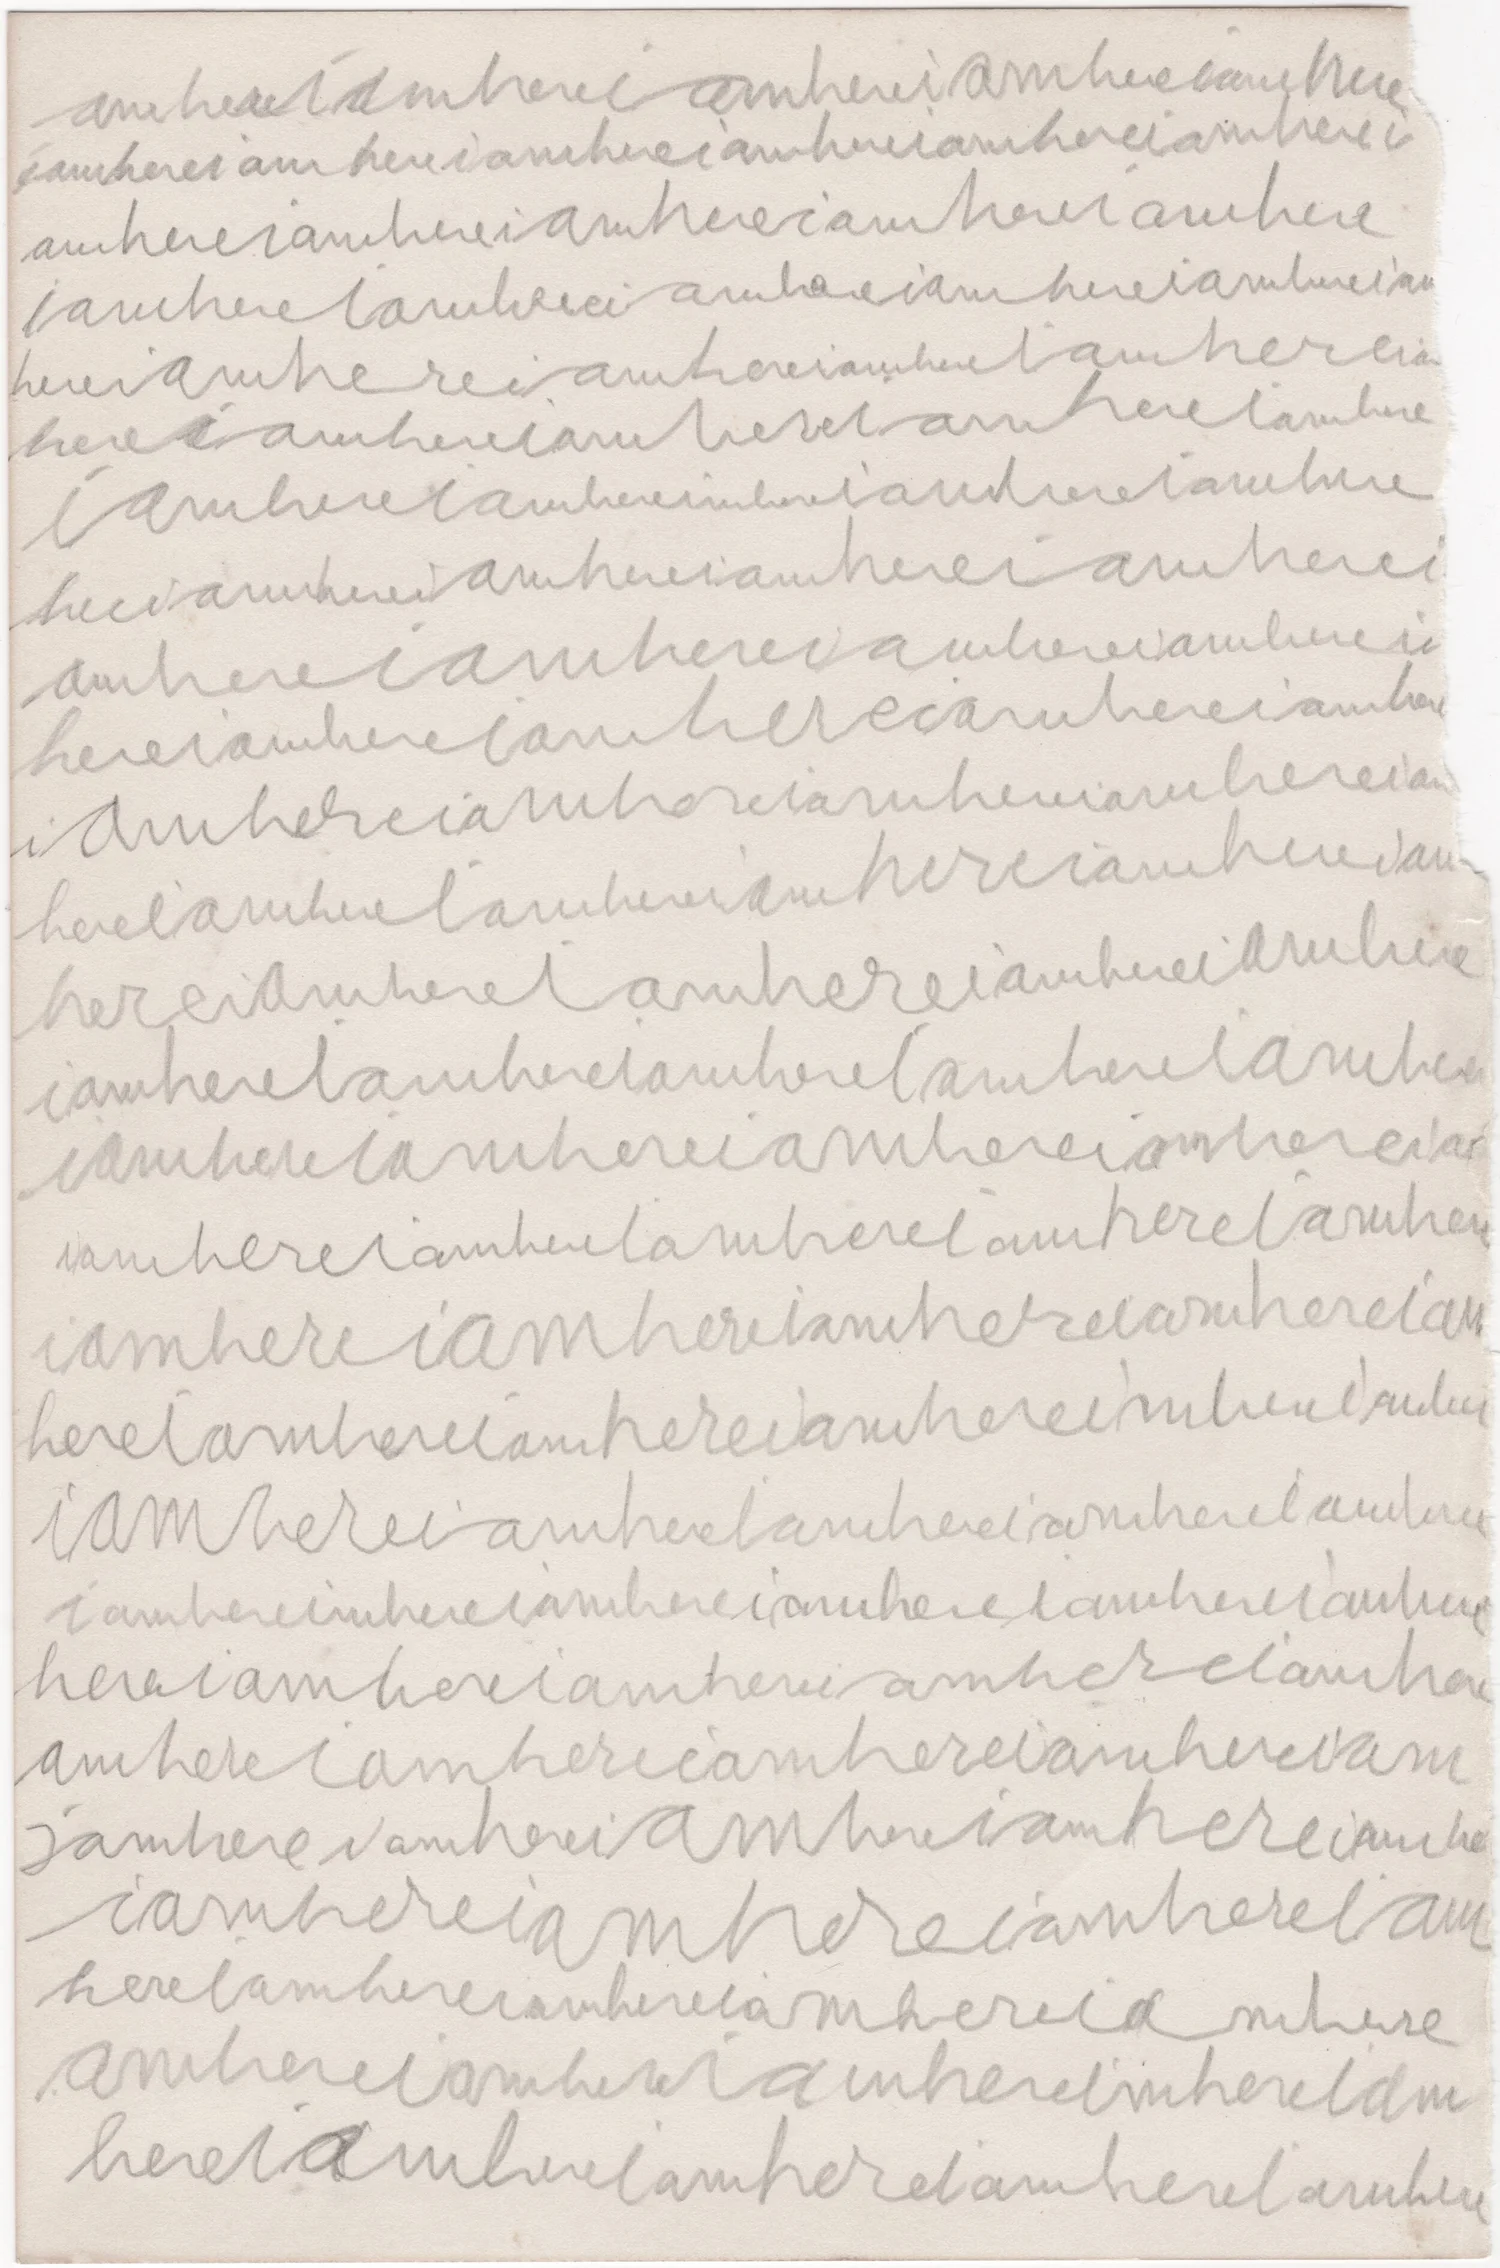 amhereiamhereiamhereiamhereiamhere
iamhereiamhereiamhereiamhereiamhereiamherei
amhereiamhereiamhereiamhereiamhere
iamhereiamhereiamhereiamhereiamhereiam
hereiamhereiamhereiamhereiamhereia
hereiamhereiamhereiamhereiamhere
iamhereiamhereimhereiamhereiamhere
hereiamhereiamhereiamhereiamherei
amhereiamhereiamhereiamherei
hereiamhereiamhereiamhereiamhere
iamhereiamhereiamhereiamhereiam
hereiamhereiamhereiamhereiamhereiam
hereiamhereiamhereiamhereiamhere
iamhereiamhereiamhereiamhereiamhere
iamhereiamhereiamhereiamhereia
iamhereiamhereiamhereiamhereiamhere
iamhereiamhereiamhereiamhereiam
hereiamhereiamhereiamhereimhereiamhere
iamhereiamhereiamhereiamhereiamhere
iamhereimhereiamhereiamhereiamhereiamhere
hereiamhereiamhereiamhereiamhere
amhereiamhereiamhereiamhereiam
iamhereiamhereiamhereiamhereiamhe
iamhereiamhereiamhereiam
hereiamhereiamhereiamhereiamhere
amhereiamhereiamhereimhereiam
hereiamhereiamhereiamhereiamhere